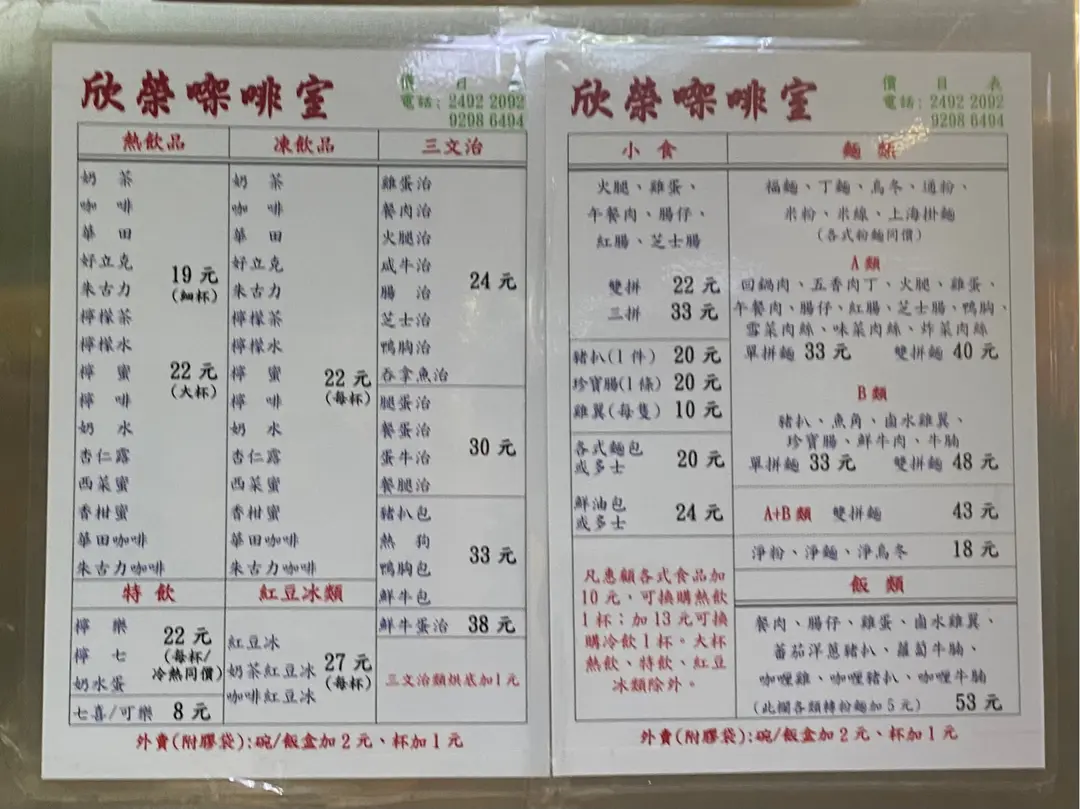 欣榮㗎啡室
價目表
電話: 2492 2092
9298 6494
熱飲品
奶茶
咖啡
華田
好立克
朱古力
檸檬茶
檸檬水
檸蜜
檸啡
奶水
杏仁露
西菜蜜
香柑蜜
華田咖啡
朱古力咖啡
19 元
(細杯)
22 元
(大杯)
凍飲品
奶茶
咖啡
華田
好立克
朱古力
檸檬茶
檸檬水
檸蜜
檸啡
奶水
杏仁露
西菜蜜
香柑蜜
華田咖啡
朱古力咖啡
22 元
(每杯)
三文治
雞蛋治
餐肉治
火腿治
咸牛治
腸治
芝士治
鴨胸治
吞拿魚治
24 元
腿蛋治
餐蛋治
蛋牛治
餐腿治
30 元
豬扒包
熱狗
鴨胸包
鮮牛包
33 元
鮮牛蛋治 38 元
三文治類烘底加1元
特飲
檸樂
檸七
奶水蛋
22 元
(每杯/
冷熱同價)
七喜/可樂 8 元
紅豆冰類
紅豆冰
奶茶紅豆冰
咖啡紅豆冰
27 元
(每杯)
外賣(附膠袋):碗/飯盒加2元、杯加1元
欣榮㗎啡室
價目表
電話: 2492 2092
9298 6494
小食
火腿、雞蛋、
午餐肉、腸仔、
紅腸、芝士腸
雙拼 22 元
三拼 33 元
豬扒(1件) 20 元
珍寶腸(1條) 20 元
雞翼(每隻) 10 元
各式麵包
或多士
20 元
鮮油包
或多士
24 元
凡惠顧各式食品加
10元、可換購熱飲
1杯;加13元可換
購冷飲1杯。大杯
熱飲、特飲、紅豆
冰類除外。
麵類
福麵、丁麵、烏冬、通粉、
米粉、米線、上海掛麵
(各式粉麵同價)
A類
回鍋肉、五香肉丁、火腿、雞蛋、
午餐肉、腸仔、紅腸、芝士腸、鴨胸、
雪菜肉絲、味菜肉絲、炸菜肉絲
單拼麵 33 元 雙拼麵 40 元
B類
豬扒、魚角、鹵水雞翼、
珍寶腸、鮮牛肉、牛腩
單拼麵 33 元 雙拼麵 48 元
A+B類 雙拼麵 43 元
淨粉、淨麵、淨烏冬 18 元
飯類
餐肉、腸仔、雞蛋、鹵水雞翼、
蕃茄洋蔥豬扒、蘿蔔牛腩、
咖喱雞、咖喱豬扒、咖喱牛腩
(此欄各類轉粉麵加5元) 53 元
外賣(附膠袋):碗/飯盒加2元、杯加1元